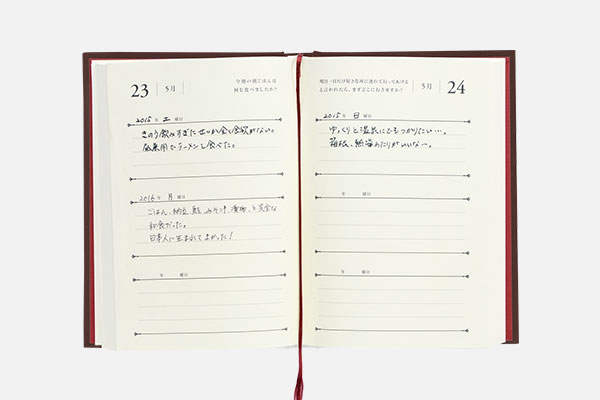 23
5月
今朝の朝ごはんは
何を食べましたか?
2015年 土 曜日
きのう飲みすぎたせいか全く食欲がない。
でラーメンし食べた。
2016年 月 曜日
ごはん、納豆、鮭、みそ汁、漬物、と完全な
和食だった。
日本人に生まれてよかった!
年 曜日
明日一日だけ好きな所に連れて行ってあげる
と言われたら、まずどこに行きますか?
5月
24
2015年 日 曜日
ゆっくりと温泉にでもつかりたい…。
箱根、熱海あたりがいいなー。
年 曜日
年 曜日